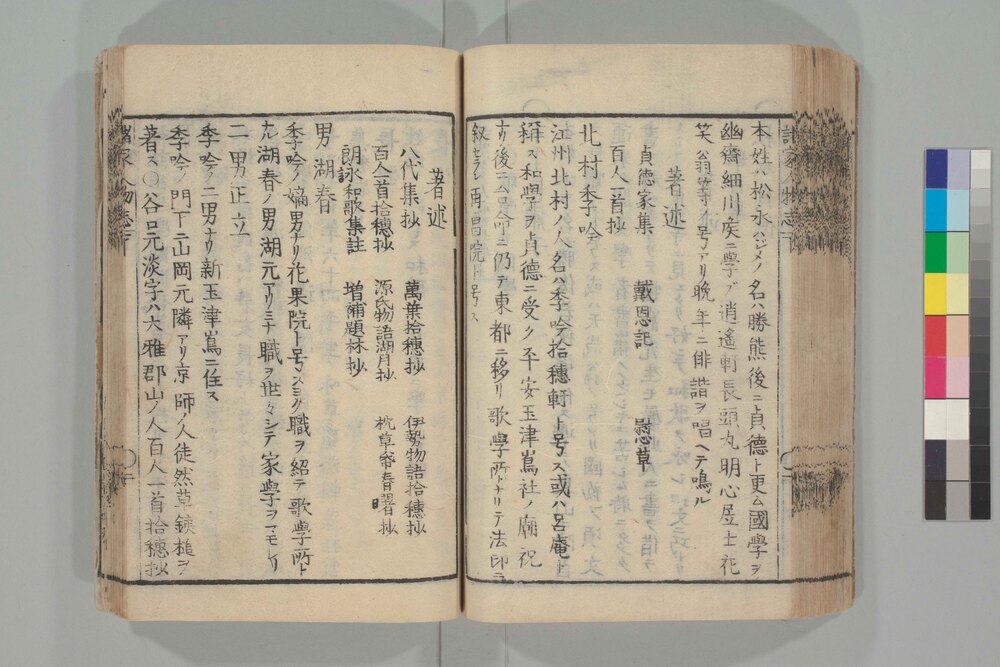 本姓ハ松永ハジメノ名ハ勝熊後ニ貞徳ト更ム國學ヲ
幽齋細川矦ニ學ブ逍遙軒長頭丸明心居士花
笑翁等ノ号アリ晩年ニ俳諧ヲ唱ヘテ鳴ル
著述
貞徳家集　戴恩記　慰草
百人一首抄
北村季吟
江州北村ノ人名ハ季吟拾穗軒ト号ス或ハ呂庵ト
稱ス和學ヲ貞德ニ受ク平安玉津嶌社ノ廟祝
ナリ後ニ台命ニ仍テ東都ニ移リ歌學所トナリテ法印ニ
叙セラレ再昌院ト号ス
著述
八代集抄　萬葉拾穗抄　伊勢物語拾穗抄
百人一首拾穗抄　源氏物語湖月抄　枕草帋春曙抄
朗詠和歌集註　増補題林抄
男湖春
季吟ノ嫡男ナリ花果院ト号ススヨク職ヲ紹テ歌學所ト
ナル湖春ノ男湖元アリミナ職ヲ世々シテ家學ヲマモレリ
二男正立
季吟ノ二男ナリ新玉津嶌ニ住ス
季吟ノ門下ニ山岡元隣アリ京師ノ人徒然草鐵槌ヲ
著ス○谷口元淡字ハ大雅郡山ノ人百人一首拾穗抄